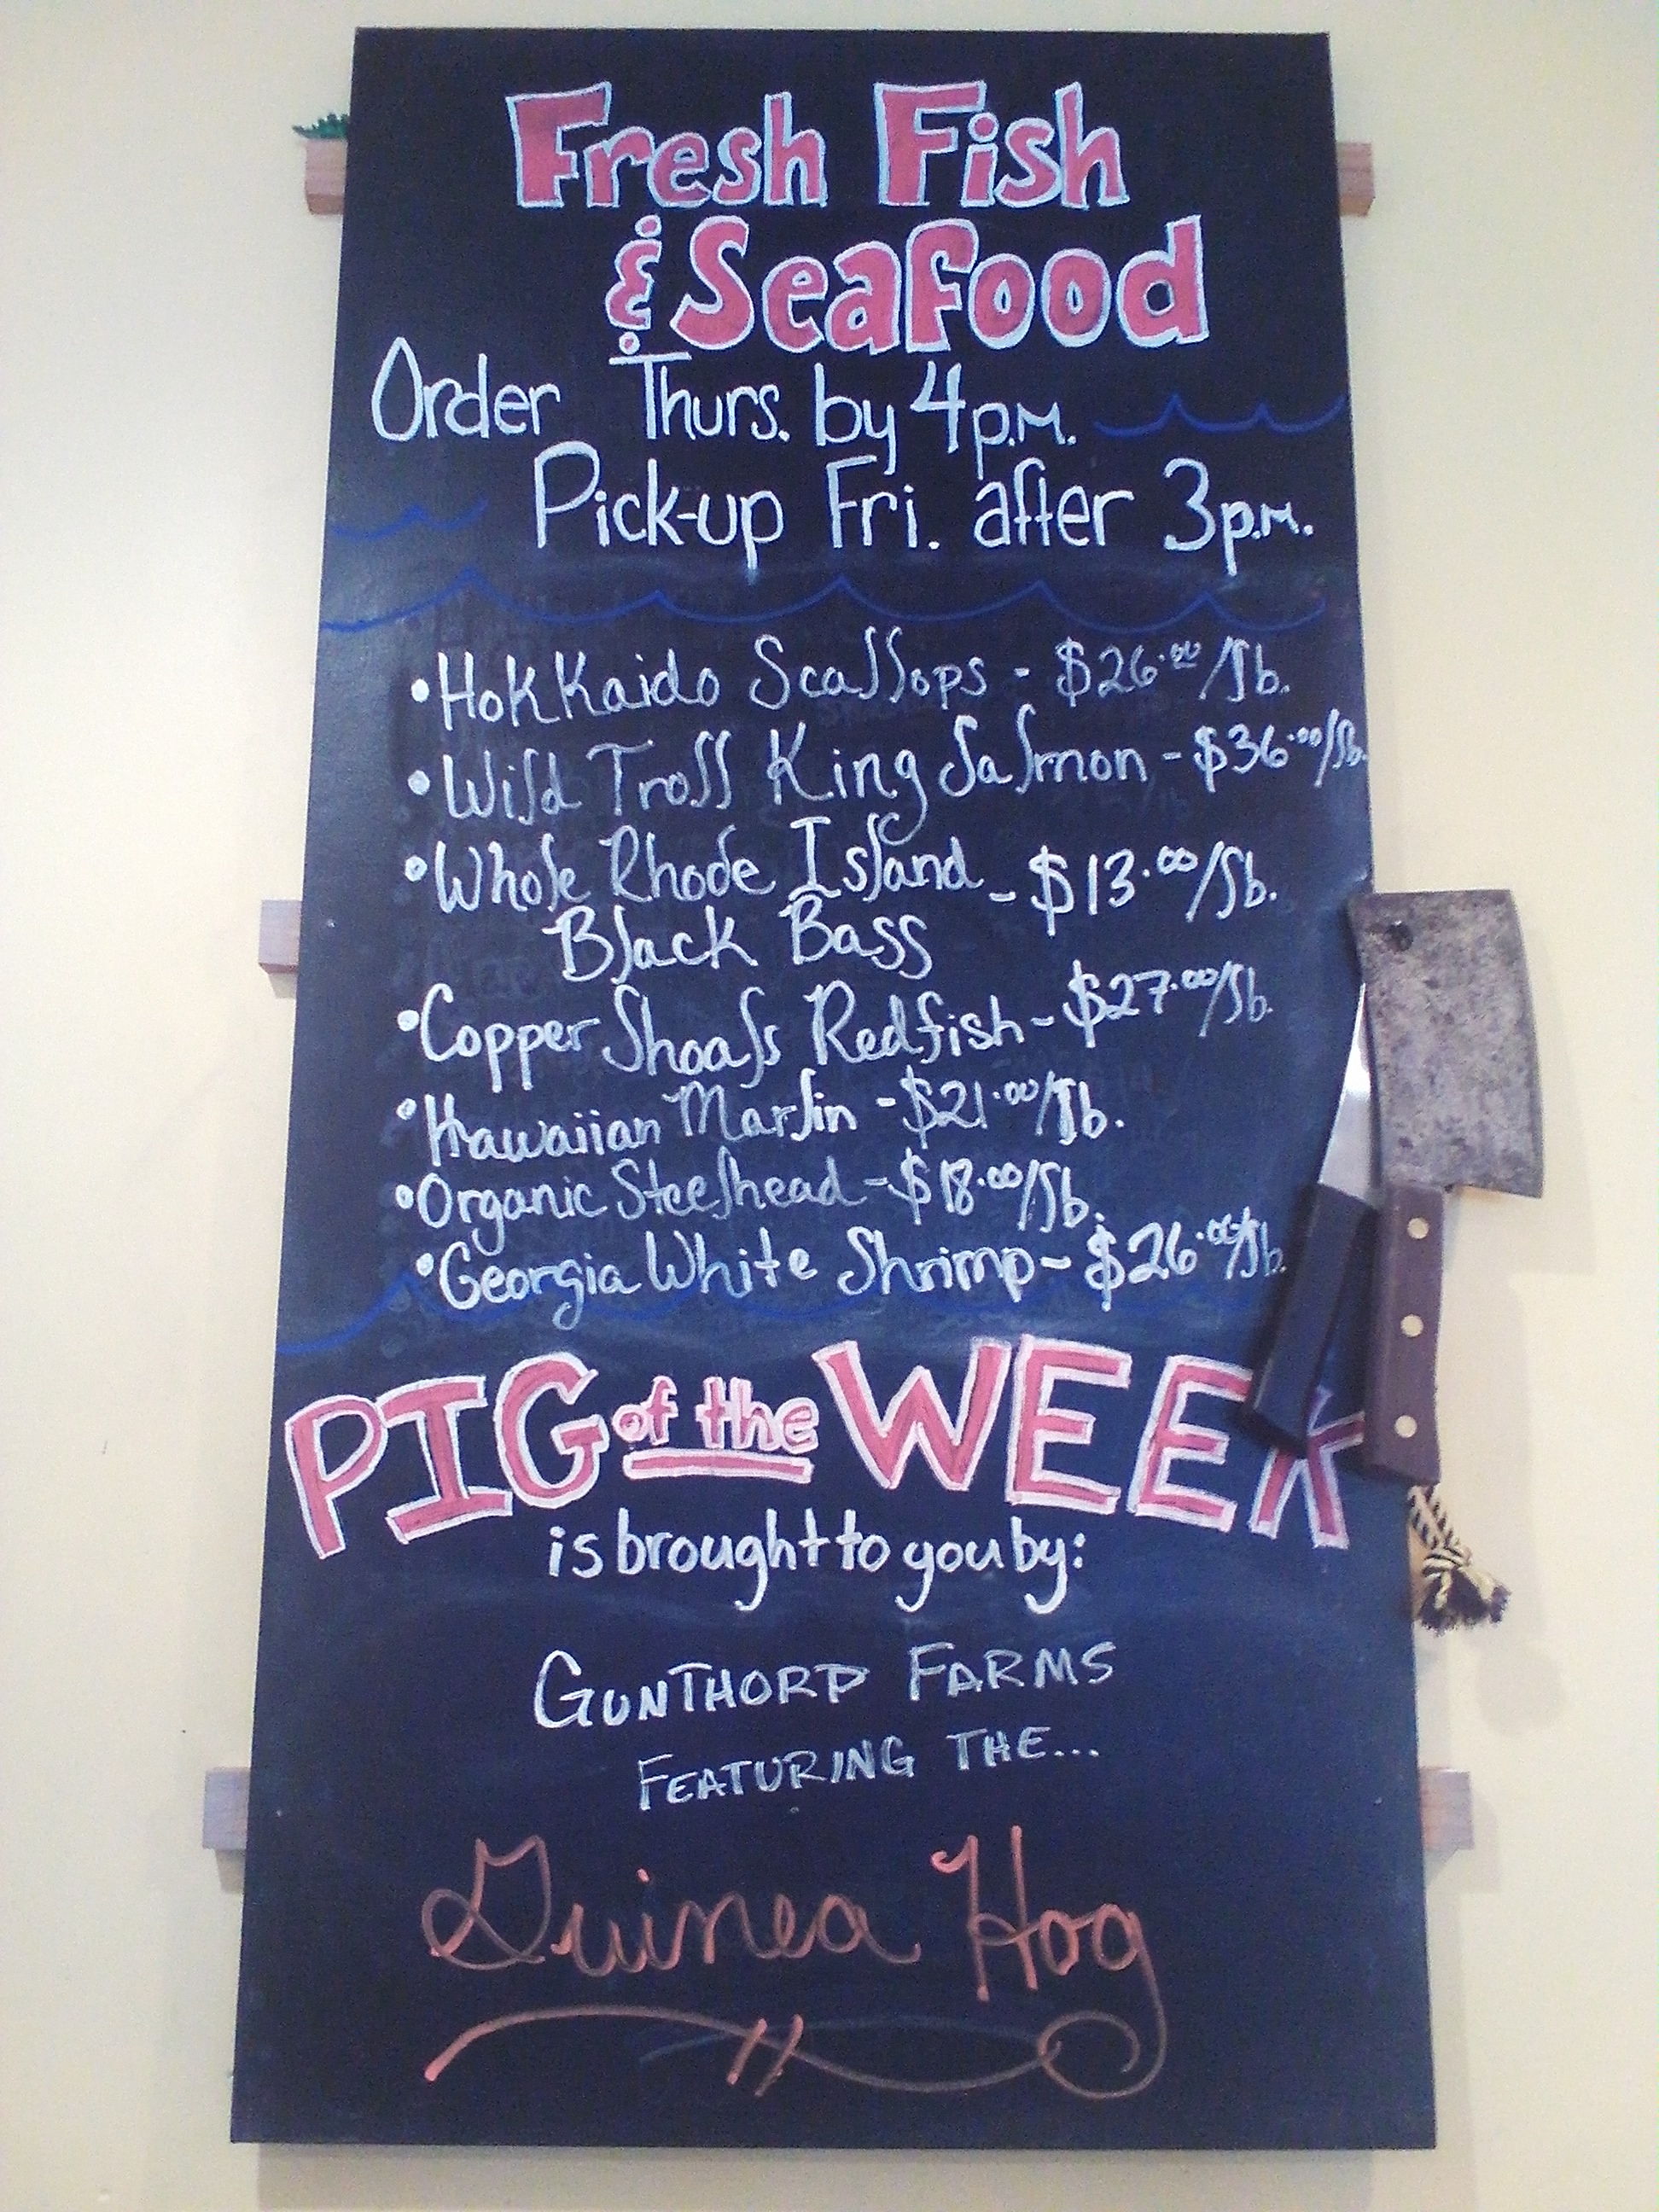 Fresh Fish
& Seafood
Order Thurs. by 4p.m.
Pick-up Fri. after 3p.m.
• Hokkaido Scallops - $26.00/lb.
• Wild Troll King Salmon - $36.00/lb.
• Whole Rhode Island - $13.00/lb.
Black Bass
• Copper Shoals Redfish - $27.00/lb.
• Hawaiian Marlin - $21.00/lb.
• Organic Steelhead - $18.00/lb.
• Georgia White Shrimp - $26.00/lb.
PIG of the WEEK
is brought to you by:
GUNTHORP FARMS
FEATURING THE...
Guinea Hog